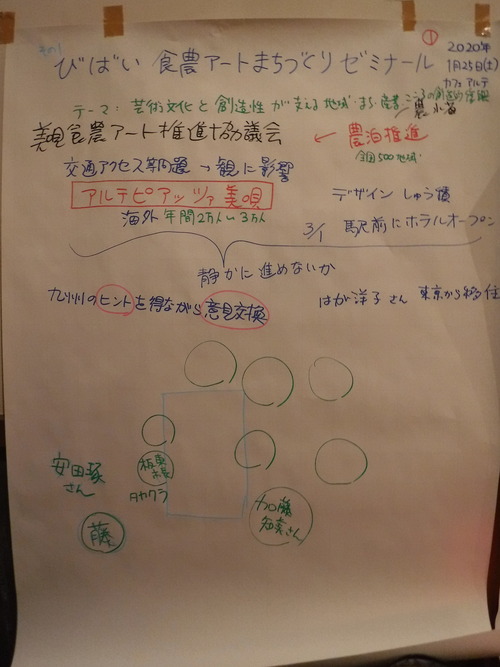 その1
①
びばい 食農アートまちづくりゼミナール
2020年
1月25日(土)
カフェ アルテ
テーマ: 芸術文化と創造性が支える地域・まち・産業
美唄食農アート推進協議会 ← 農泊推進
全国500地域
交通アクセス等問題 → 観に影響
アルテピアッツァ美唄
デザイン しゅう積
海外 年間2万人〜3万人
3/1 駅前にホテルオープン
静かに進めないか
九州のヒントを得ながら意見交換
はが洋子さん 東京から移住
安田
さん
板東
タカクラ
藤
加藤
さん